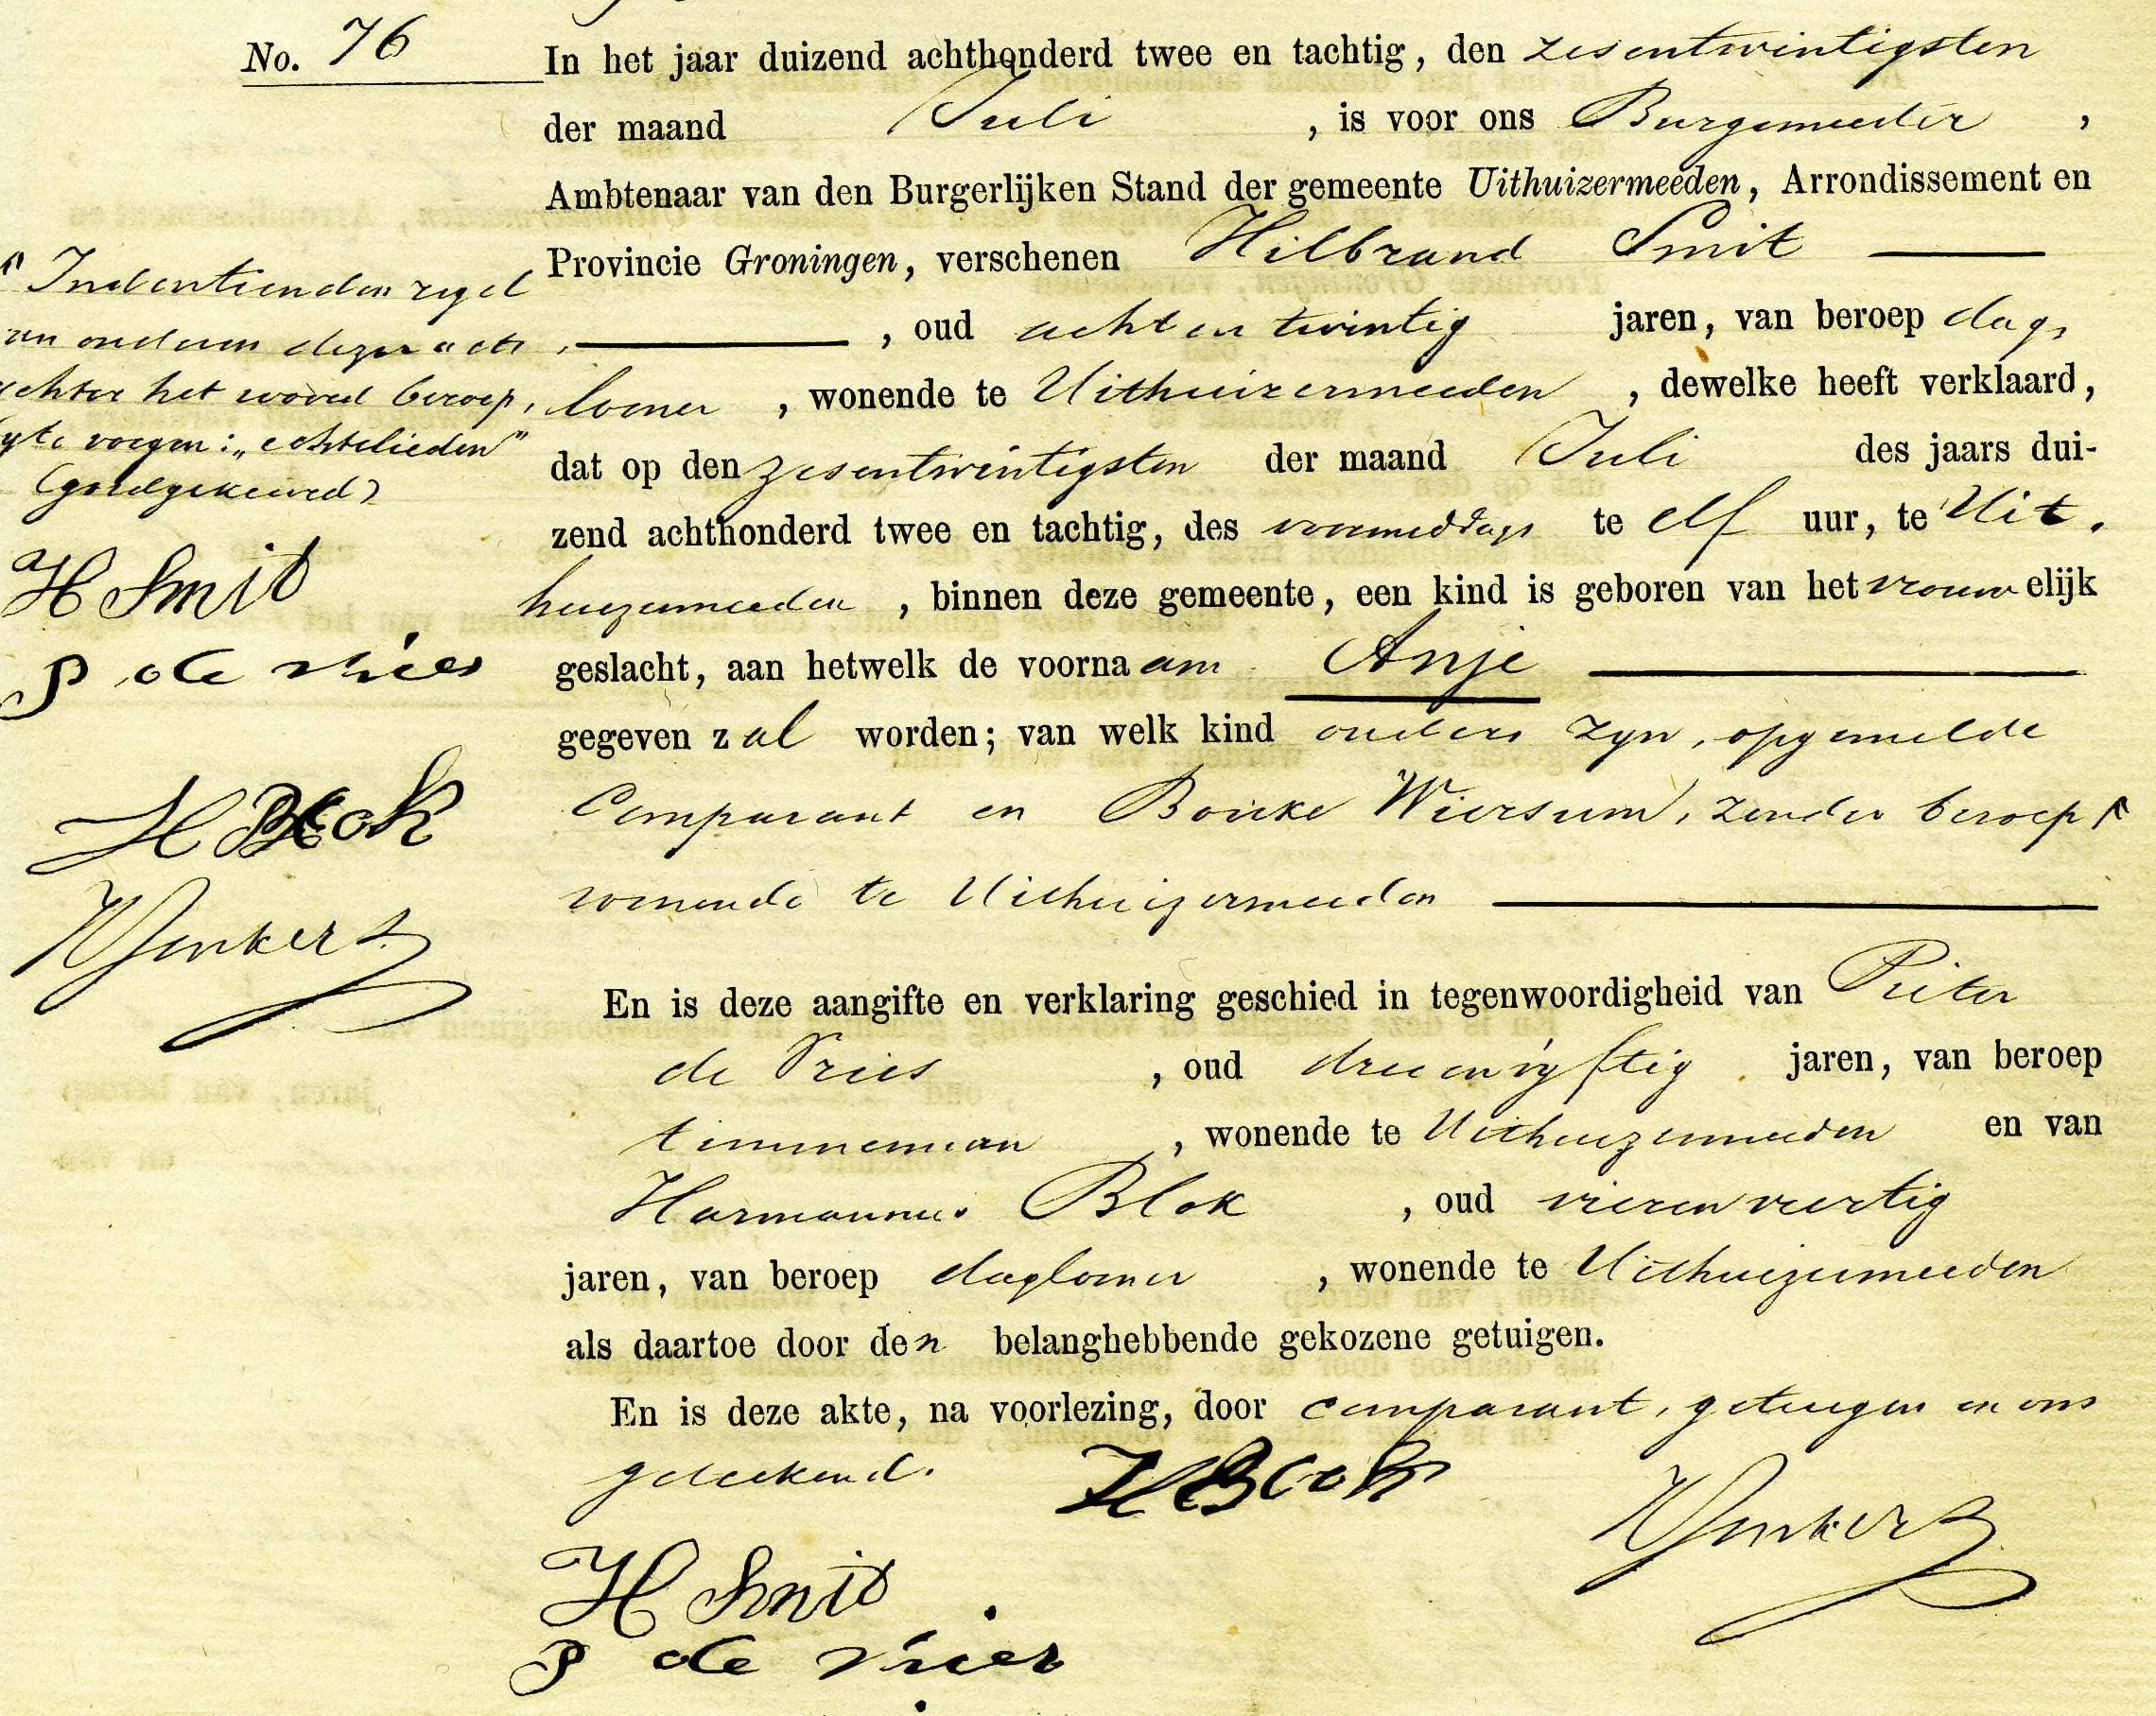 No. 76
In het jaar duizend achthonderd twee en tachtig, den zesentwintigsten
der maand Juli, is voor ons Burgemeester,
Ambtenaar van den Burgerlijken Stand der gemeente Uithuizermeeden, Arrondissement en
Provincie Groningen, verschenen Hilbrand Smit
, oud acht en twintig jaren, van beroep dag,
loner, wonende te Uithuizermeeden, dewelke heeft verklaard,
dat op den zesentwintigsten der maand Juli des jaars dui-
zend achthonderd twee en tachtig, des voormiddags te elf uur, te Uit.
huizermeeden, binnen deze gemeente, een kind is geboren van het vrouwelijk
geslacht, aan hetwelk de voornaam Anje
gegeven zal worden; van welk kind ouders zyn, opgemelde
Comparant en Bouke Wiersum, zonder beroep
wonende te Uithuizermeeden
En is deze aangifte en verklaring geschied in tegenwoordigheid van Pieter
de Vries, oud drieenvyftig jaren, van beroep
timmerman, wonende te Uithuizermeeden en van
Harmannus Blok, oud vierenveertig
jaren, van beroep dagloner, wonende te Uithuizermeeden
als daartoe door den belanghebbende gekozene getuigen.
En is deze akte, na voorlezing, door comparant, getuigen en ons
geteekend.
H Blok
H Smit
P de Vries
In den tienden regel
van onderen dezer acte
achter het woord beroep,
by te voegen: „echtelieden"
(goedgekeurd)
H Smit
P de Vries
H Blok